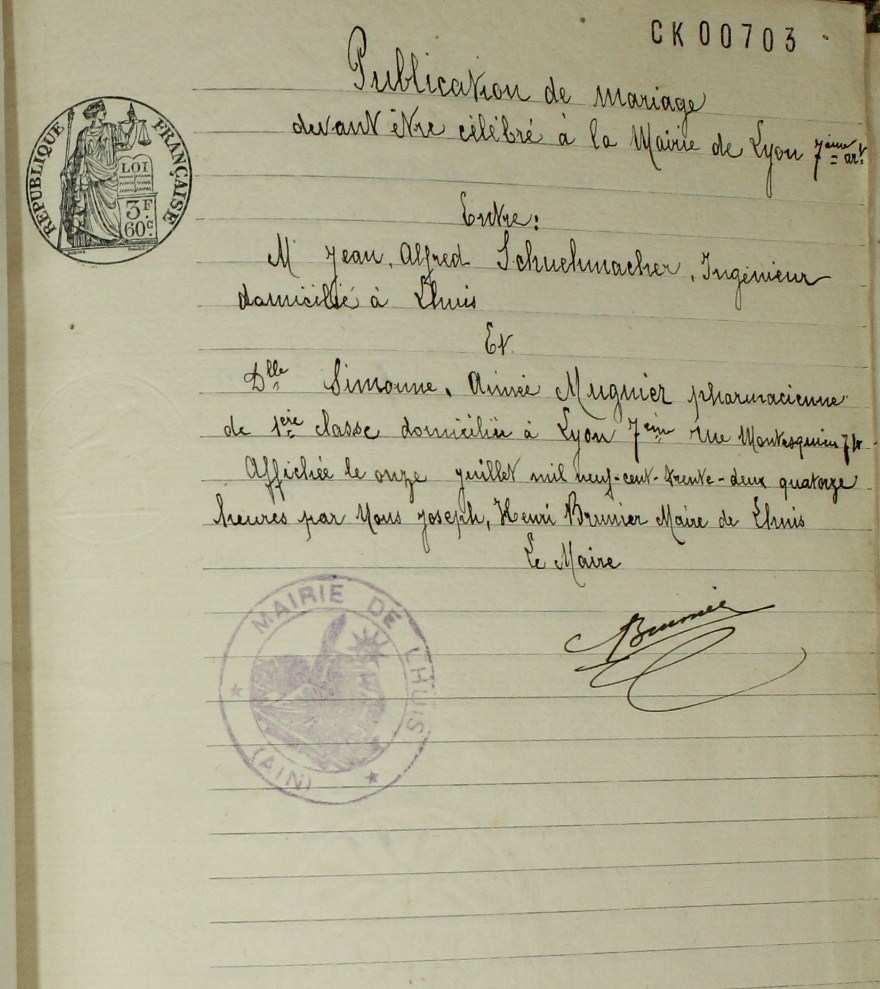 CK00703
Publication de mariage
devant être célébré à la Mairie de Lyon 7ème arrt
RÉPUBLIQUE FRANÇAISE
LOI
3F.
60c.
Entre:
M Jean, Alfred Schuehmacher, Ingénieur
domicilié à Lhuis
Et
Dlle Simonne, Aimée Mugnier pharmacienne
de 1ère classe domiciliée à Lyon 7ème rue Montesquieu
Affichée le onze juillet mil neuf-cent-trente-deux quatorze
heures par Nous Joseph, Henri Brunier Maire de Lhuis
Le Maire
Brunier
MAIRIE DE LHUIS
(AIN)